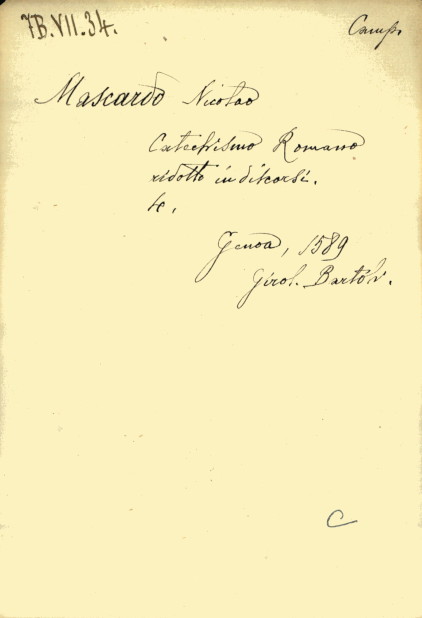 7B.VII.34.
Camp.
Mascardo Nicolao
Catechismo Romano
ridotto in discorsi.
4.
Genoa, 1589
Girol. Bartoli.
C